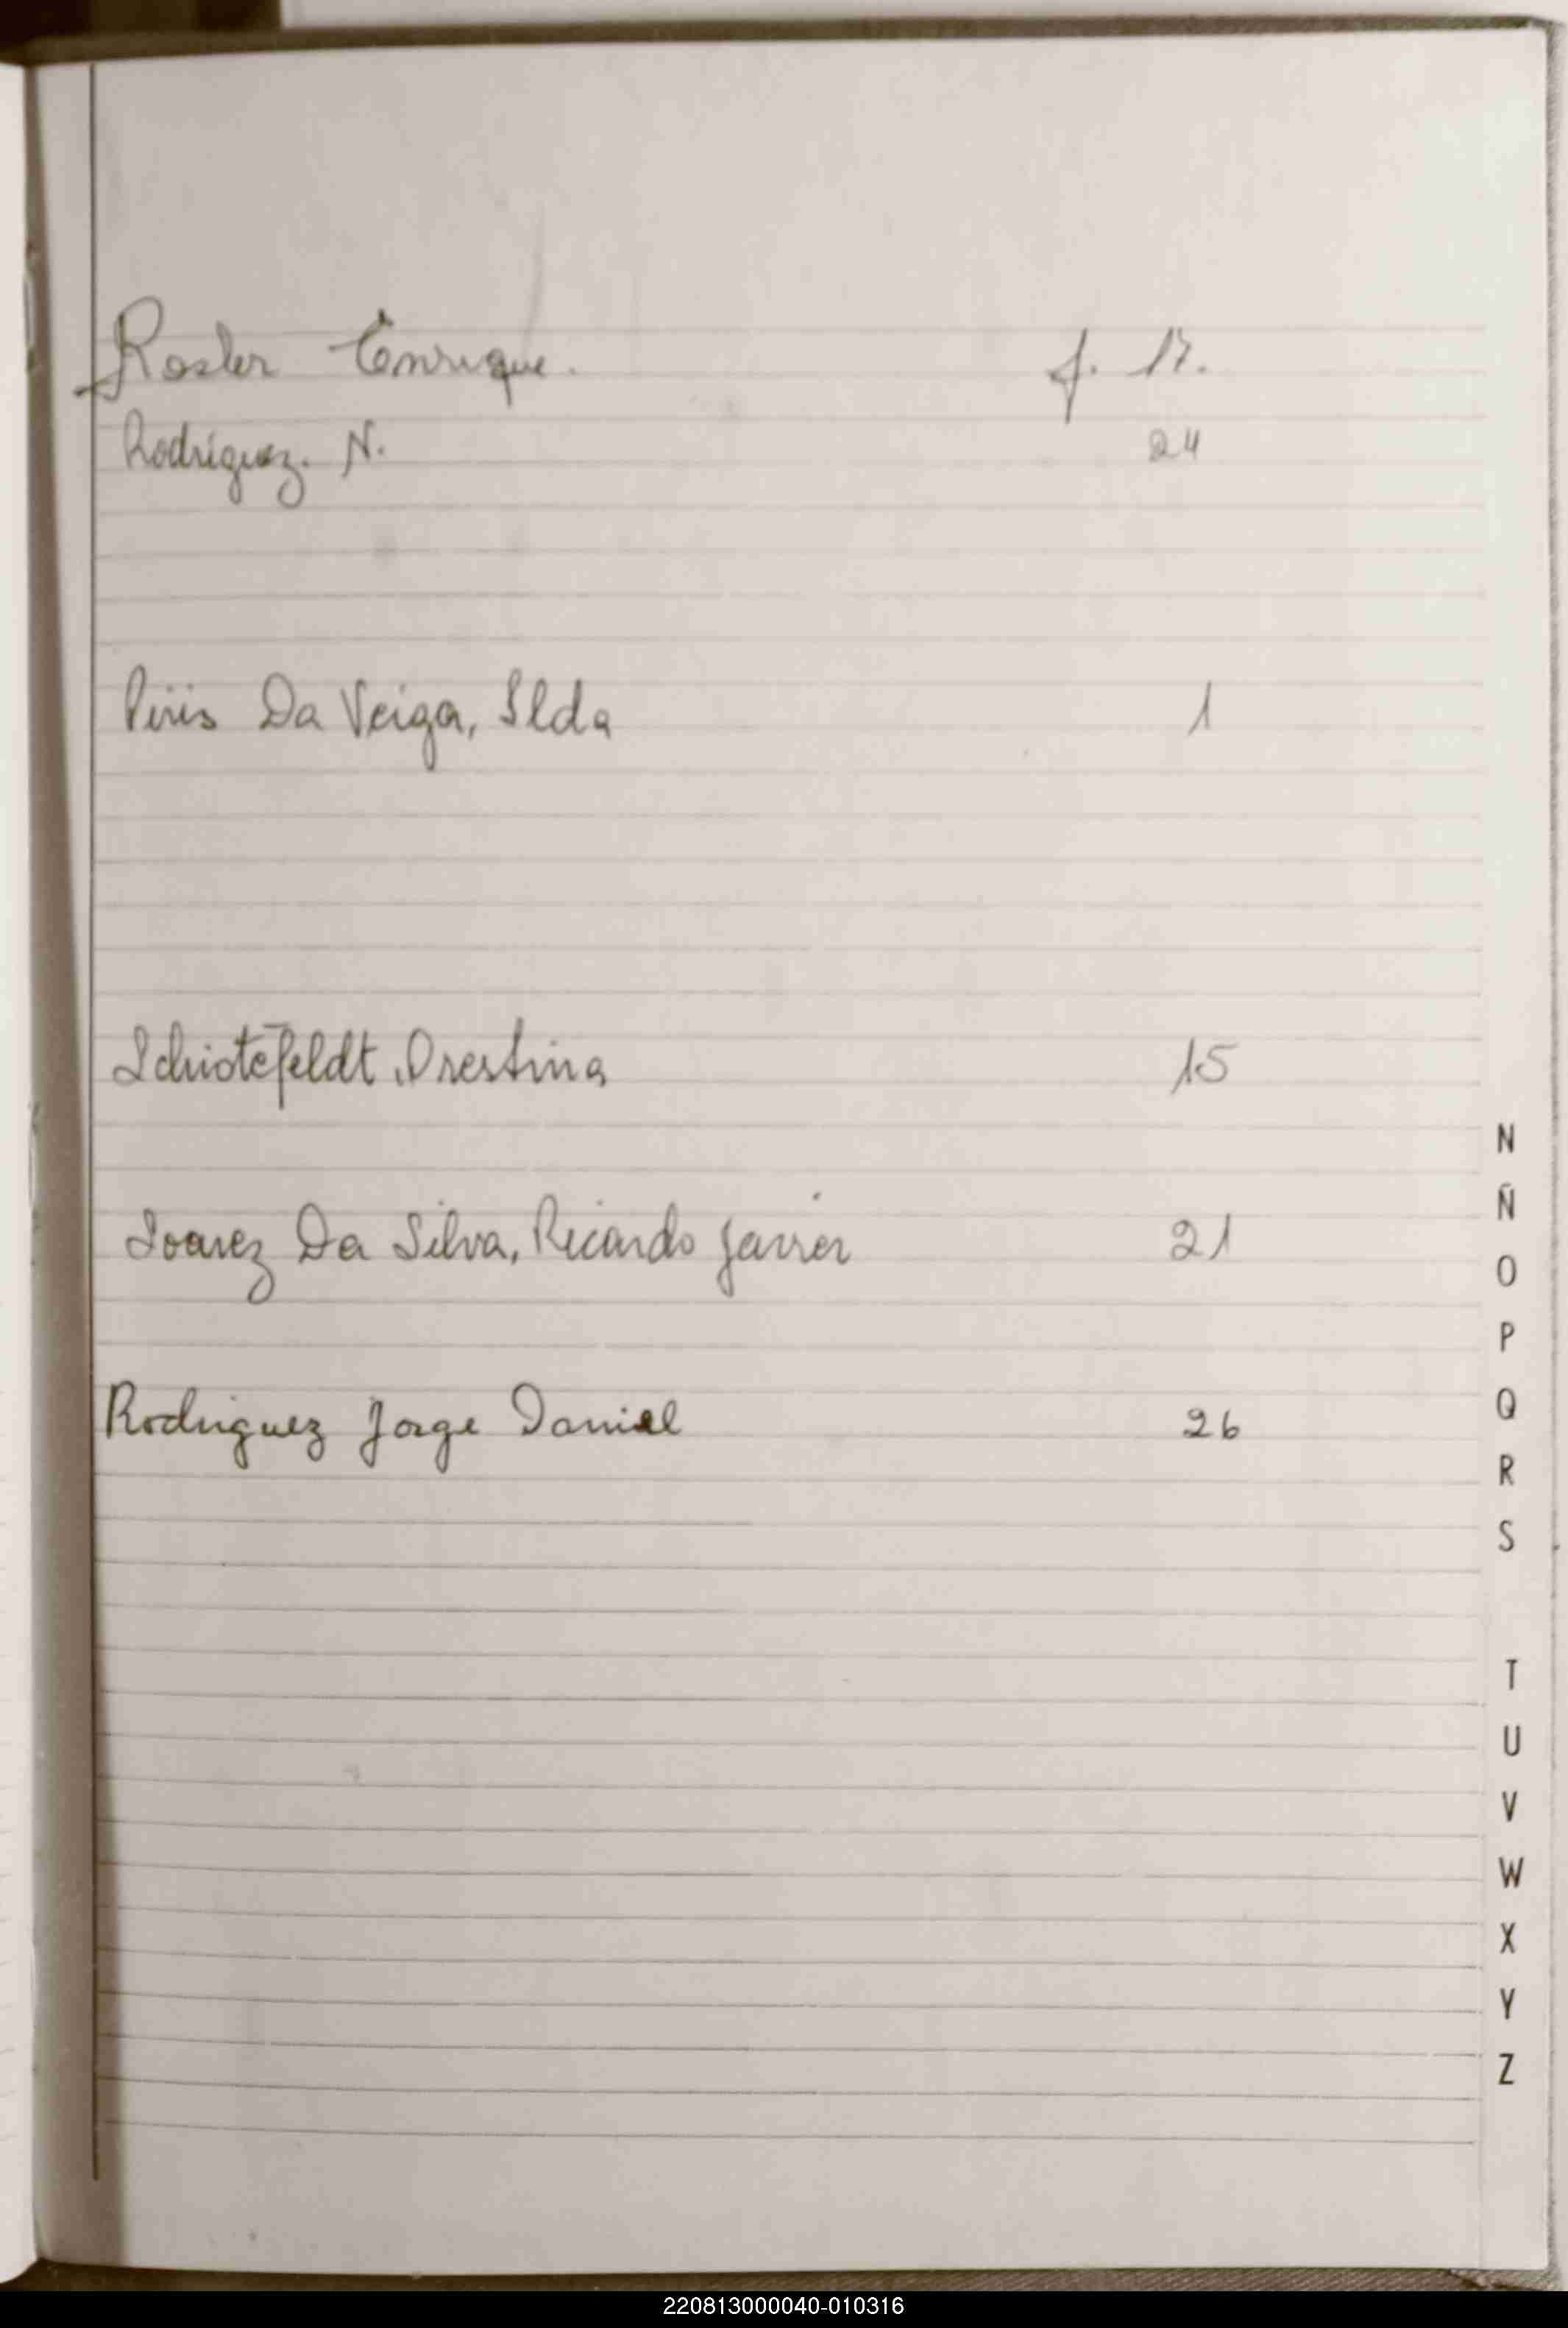 Rosler Enrique. f. 17.
Rodríguez. N. 24
Piris Da Veiga, Ilda 1
Schiotefeldt, Orestina 15
Soarez Da Silva, Ricardo Javier 21
Rodriguez Jorge Daniel 26
N
Ñ
O
P
Q
R
S
T
U
V
W
X
Y
Z
220813000040-010316